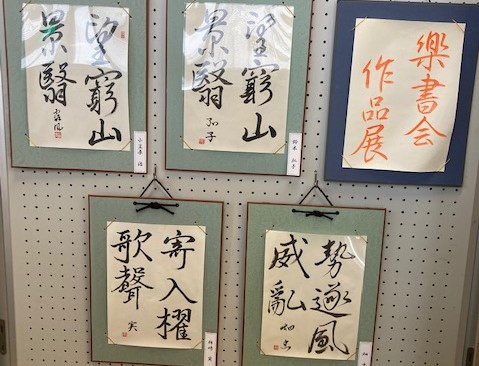 樂書会
作品展
望窮山
景翳
望窮山
景翳
勢逐風
威亂
寄入櫂
歌聲
実